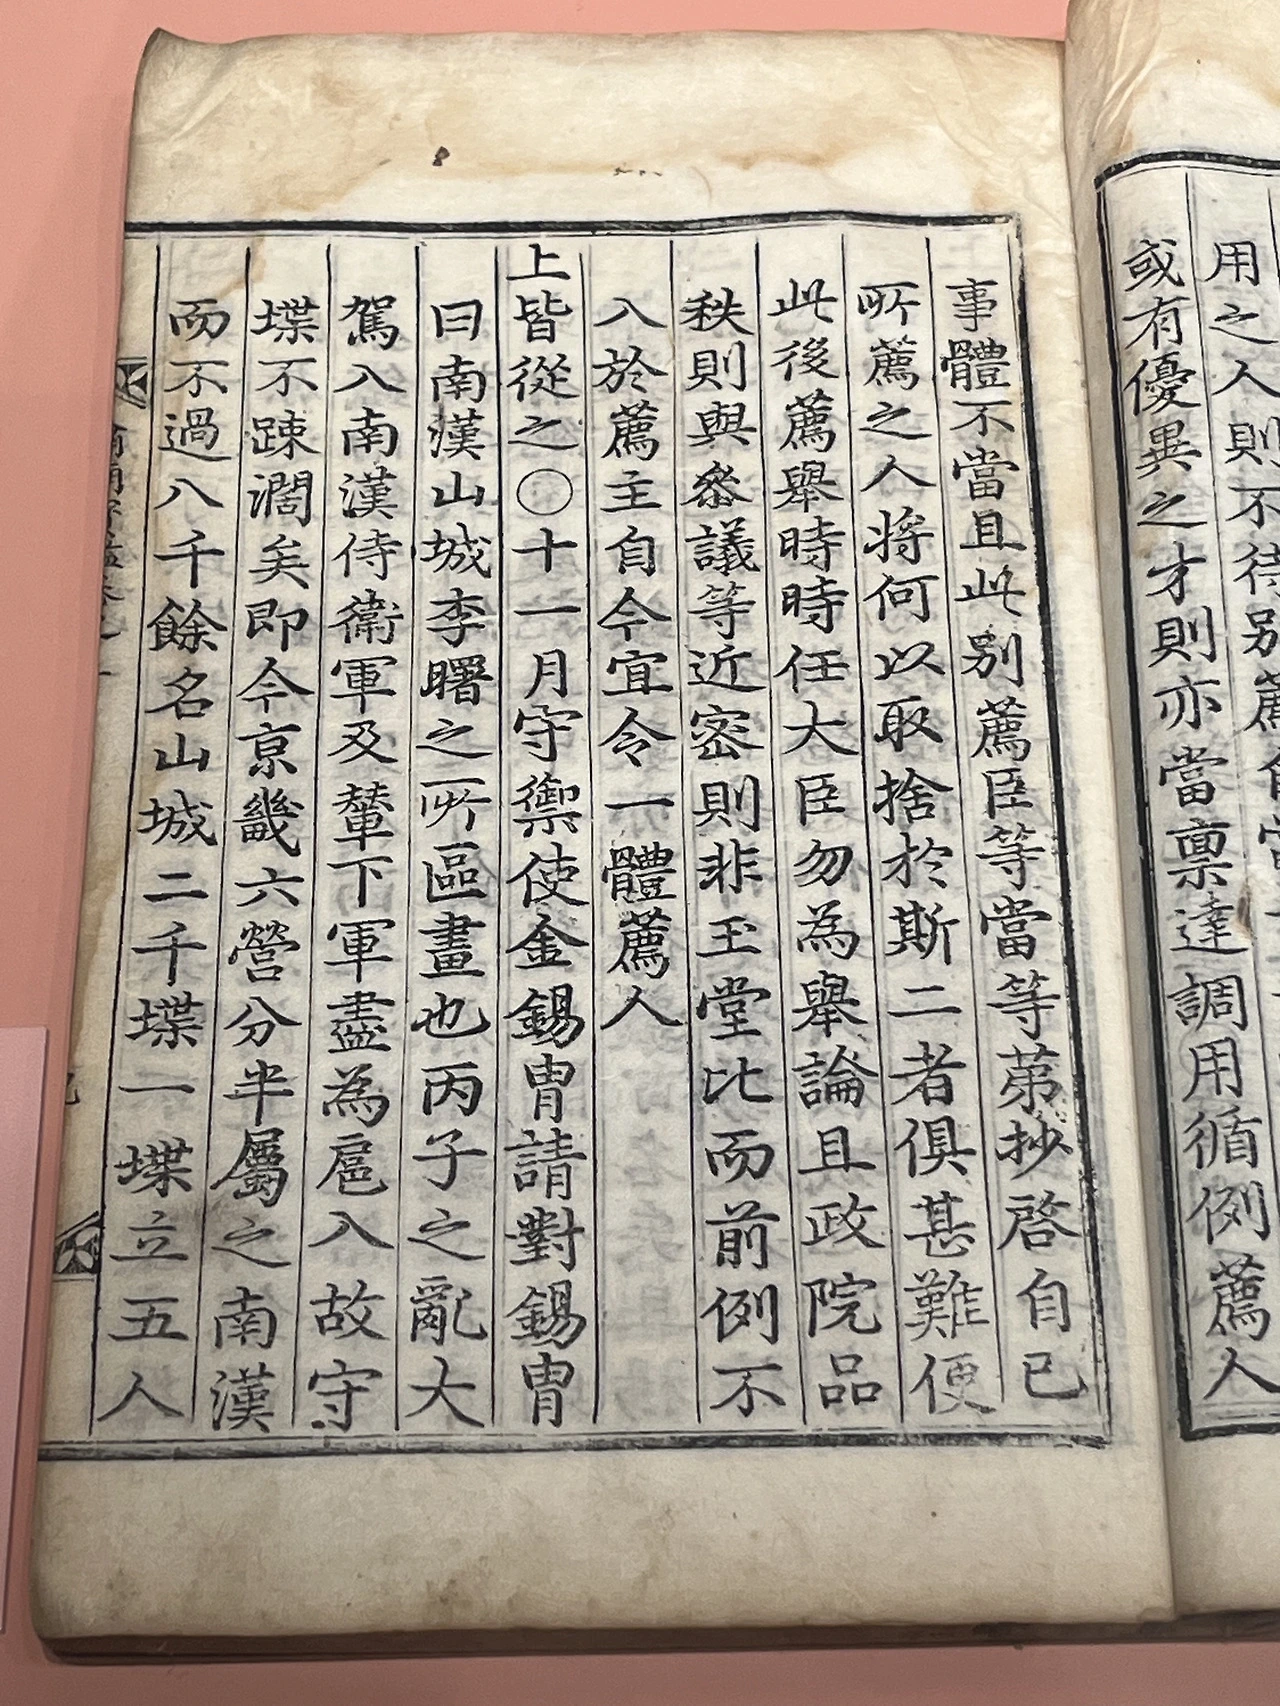 用之人則不待別薦
或有優異之才則亦當稟達調用循例薦人
事體不當且此別薦臣等當等苐抄啓自已
所薦之人將何以取捨於斯二者俱甚難便
此後薦舉時時任大臣勿為舉論且政院品
秩則與叅議等近密則非玉堂比而前例不
入於薦主自今宜令一體薦人
上皆從之○十一月守禦使金錫胄請對錫胄
曰南漢山城李曙之所區畫也丙子之亂大
駕入南漢侍衛軍及輦下軍盡為扈入故守
堞不踈濶矣即今京畿六營分半屬之南漢
而不過八千餘名山城二千堞一堞立五人